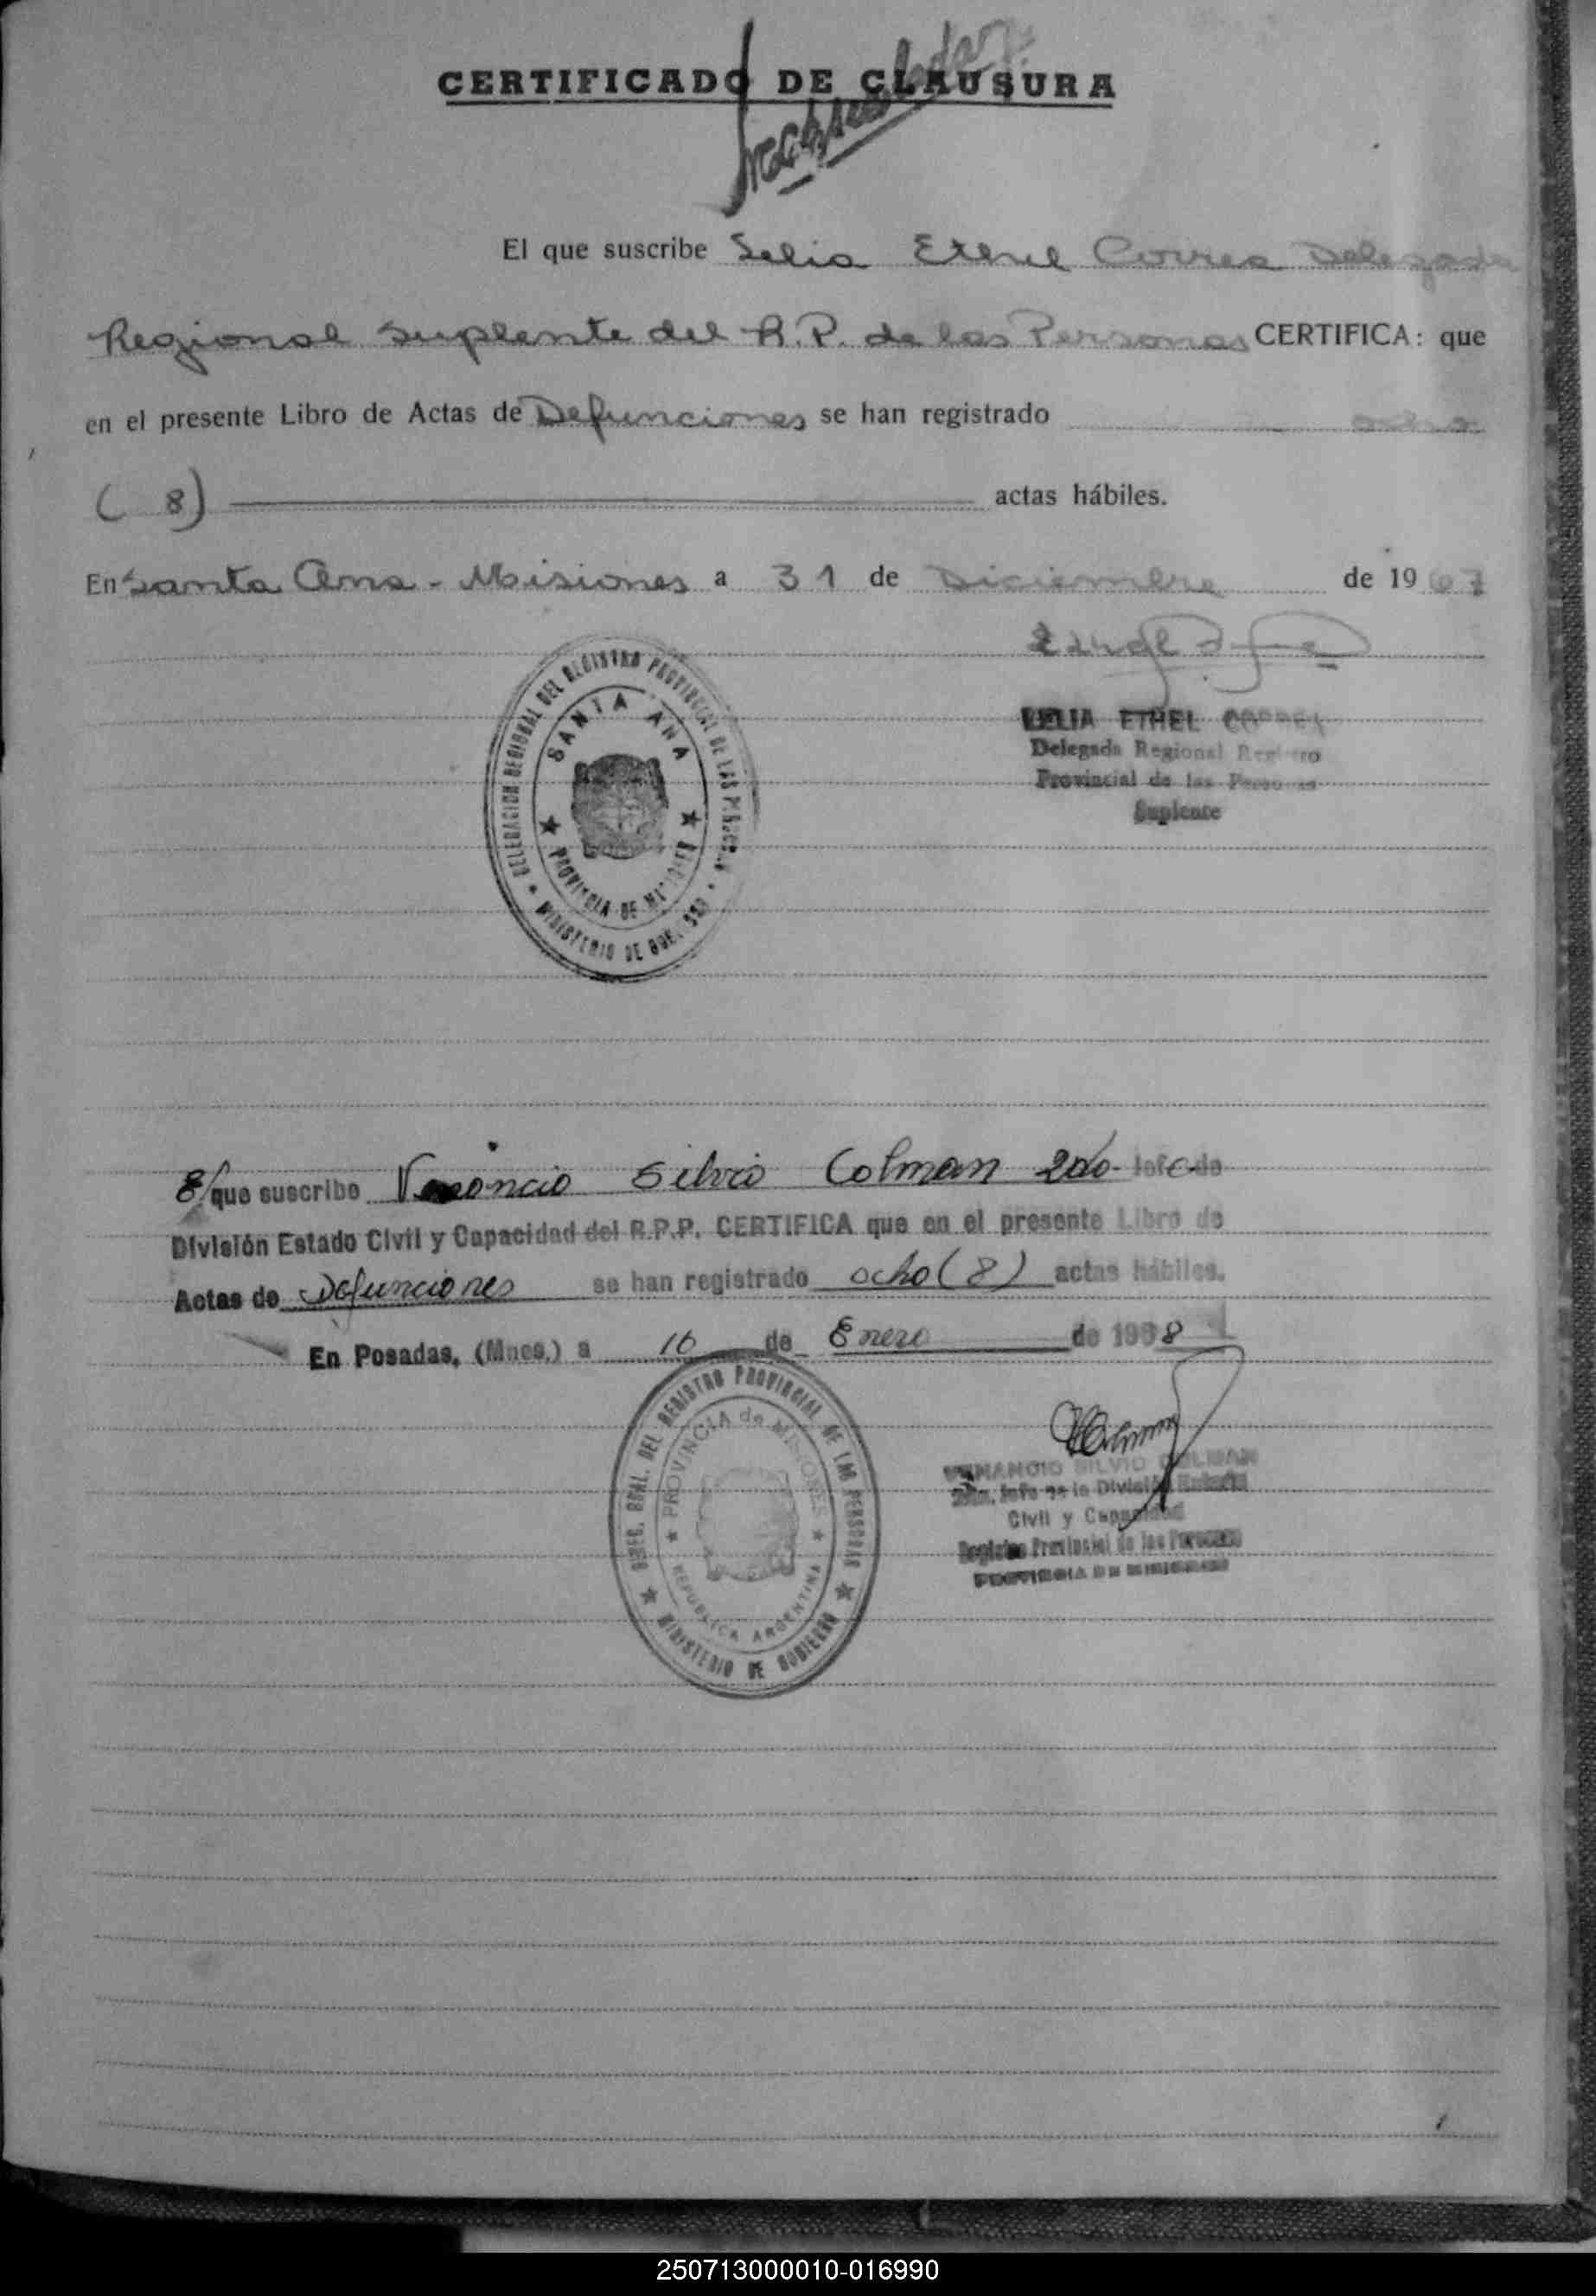 CERTIFICADO DE CLAUSURA
El que suscribe Selia Ethel Correa Delegada
Regional Suplente del R.P. de las Personas CERTIFICA: que
en el presente Libro de Actas de Defunciones se han registrado ocho
( 8) actas hábiles.
En Santa Ana - Misiones a 31 de Diciembre de 1967
DELEGACION REGIONAL DEL REGISTRO PROVINCIAL DE LAS PERSONAS
SANTA ANA
PROVINCIA DE MISIONES
MINISTERIO DE GOBIERNO
LELIA ETHEL CORREA
Delegada Regional Registro
Provincial de las Personas
Suplente
El que suscribe Venancio Silvio Colman 2do Jefe de
División Estado Civil y Capacidad del R.P.P. CERTIFICA que en el presente Libro de
Actas de Defunciones se han registrado ocho (8) actas hábiles.
En Posadas, (Mnes.) a 16 de Enero de 1968
DIREC. GRAL. DEL REGISTRO PROVINCIAL DE LAS PERSONAS
PROVINCIA de MISIONES
REPUBLICA ARGENTINA
MINISTERIO DE GOBIERNO
VENANCIO SILVIO COLMAN
2do. Jefe de la División Estado
Civil y Capacidad
Registro Provincial de las Personas
PROVINCIA DE MISIONES
250713000010-016990